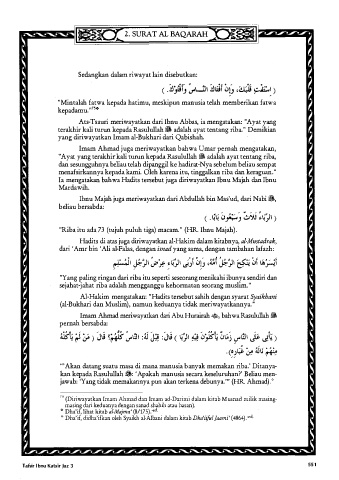 2. SURAT AL BAQARAH
Sedangkan dalam riwayat lain disebutkan:
( اِسْتَفْتِ قَلْبَكَ، وَإِنْ أَفْتَاكَ النَّاسُ وَأَفْتَوْكَ. )
"Mintalah fatwa kepada hatimu, meskipun manusia telah memberikan fatwa
kepadamu."
Ats-Tsauri meriwayatkan dari Ibnu Abbas, ia mengatakan: "Ayat yang
terakhir kali turun kepada Rasulullah ﷺ adalah ayat tentang riba." Demikian
yang diriwayatkan Imam al-Bukhari dari Qabishah.
Imam Ahmad juga meriwayatkan bahwa Umar pernah mengatakan,
"Ayat yang terakhir kali turun kepada Rasulullah ﷺ adalah ayat tentang riba,
dan sesungguhnya beliau telah dipanggil ke hadirat-Nya sebelum beliau sempat
menafsirkannya kepada kami. Oleh karena itu, tinggalkan riba dan keraguan."
Ia mengatakan bahwa Hadits tersebut juga diriwayatkan Ibnu Majah dan Ibnu
Mardawih.
Ibnu Majah juga meriwayatkan dari Abdullah bin Mas'ud, dari Nabi ﷺ,
beliau bersabda:
( الرِّبَاءُ ثَلَاثٌ وَسَبْعُونَ بَابًا. )
"Riba itu ada 73 (tujuh puluh tiga) macam." (HR. Ibnu Majah).
Hadits di atas juga diriwayatkan al-Hakim dalam kitabnya, al-Mustadrak,
dari 'Amr bin 'Ali al-Falas, dengan isnad yang sama, dengan tambahan lafazh:
أَيْسَرُهَا أَنْ يَنْكِحَ الرَّجُلُ أُمَّهُ، وَإِنَّ أَرْبَى الرِّبَاءِ عِرْضُ الرَّجُلِ الْمُسْلِمِ
"Yang paling ringan dari riba itu seperti seseorang menikahi ibunya sendiri dan
sejahat-jahat riba adalah mengganggu kehormatan seorang muslim."
Al-Hakim mengatakan: "Hadits tersebut sahih dengan syarat Syaikhani
(al-Bukhari dan Muslim), namun keduanya tidak meriwayatkannya."
Imam Ahmad meriwayatkan dari Abu Hurairah, bahwa Rasulullah ﷺ
pernah bersabda:
( يَأْتِي عَلَى النَّاسِ زَمَانٌ يَأْكُلُونَ فِيهِ الرِّبَا ) قَالَ: قِيلَ لَهُ: النَّاسُ كُلُّهُمْ؟ قَالَ: ( مَنْ لَمْ يَأْكُلْهُ
مِنْهُمْ نَالَهُ مِنْ غُبَارِهِ).
"'Akan datang suatu masa di mana manusia banyak memakan riba.' Ditanya-
kan kepada Rasulullah ﷺ: 'Apakah manusia secara keseluruhan?' Beliau men-
jawab: 'Yang tidak memakannya pun akan terkena debunya.'" (HR. Ahmad).
(Diriwayatkan Imam Ahmad dan Imam ad-Darimi dalam kitab Musnad milik masing-
masing dari keduanya dengan sanad shahih atau hasan).
Dha'if, lihat kitab al-Majma' (8/175).
Dha'if, didha'ifkan oleh Syaikh al-Albani dalam kitab Dha'iiful Jaami' (4864).
Tafsir Ibnu Katsir Juz 3
551